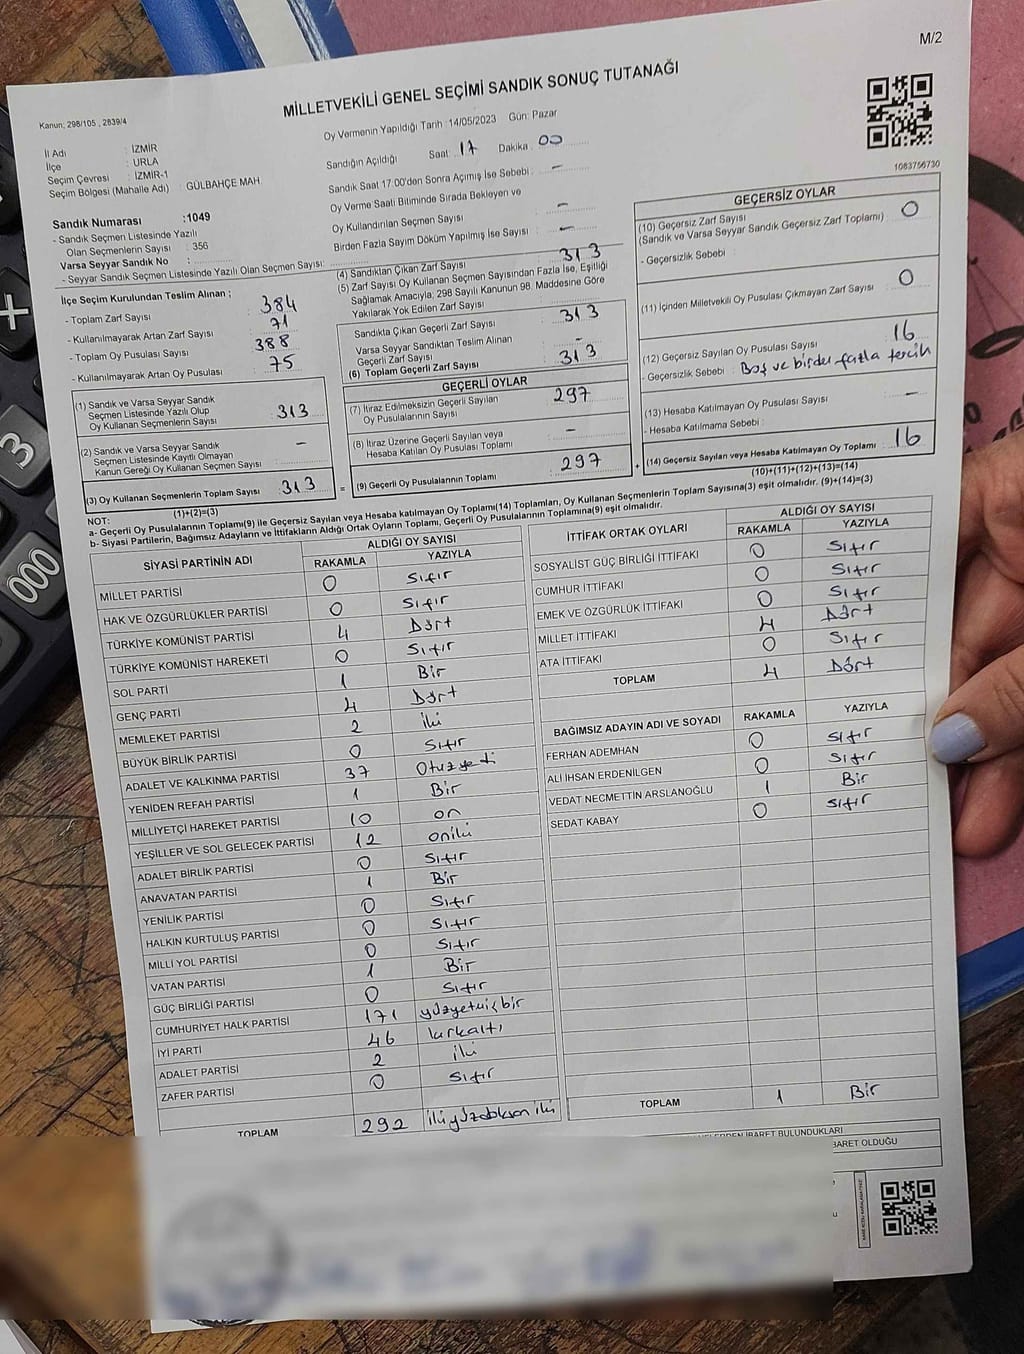 M/2
MİLLETVEKİLİ GENEL SEÇİMİ SANDIK SONUÇ TUTANAĞI
Kanun; 298/105 , 2839/4
Oy Vermenin Yapıldığı Tarih : 14/05/2023 Gün: Pazar
İl Adı : İZMİR
İlçe : URLA
Seçim Çevresi : İZMİR-1
Seçim Bölgesi (Mahalle Adı) : GÜLBAHÇE MAH.
Sandık Numarası : 1049
- Sandık Seçmen Listesinde Yazılı
Olan Seçmenlerin Sayısı : 356
Varsa Seyyar Sandık No :
- Seyyar Sandık Seçmen Listesinde Yazılı Olan Seçmen Sayısı:
Sandığın Açıldığı Saat: 17 Dakika: 00
Sandık Saat 17.00'den Sonra Açımış İse Sebebi : –
Oy Verme Saati Bitiminde Sırada Bekleyen ve
Oy Kullandırılan Seçmen Sayısı : –
Birden Fazla Sayım Döküm Yapılmış İse Sayısı : –
1083756730
İlçe Seçim Kurulundan Teslim Alınan ;
- Toplam Zarf Sayısı : 384
- Kullanılmayarak Artan Zarf Sayısı : 71
- Toplam Oy Pusulası Sayısı : 388
- Kullanılmayarak Artan Oy Pusulası : 75
(1) Sandık ve Varsa Seyyar Sandık
Seçmen Listesinde Yazılı Olup
Oy Kullanan Seçmenlerin Sayısı : 313
(2) Sandık ve Varsa Seyyar Sandık
Seçmen Listesinde Kayıtlı Olmayan
Kanun Gereği Oy Kullanan Seçmen Sayısı : –
(3) Oy Kullanan Seçmenlerin Toplam Sayısı : 313
(1)+(2)=(3)
(4) Sandıktan Çıkan Zarf Sayısı : 313
(5) Zarf Sayısı Oy Kullanan Seçmen Sayısından Fazla İse, Eşitliği
Sağlamak Amacıyla; 298 Sayılı Kanunun 98. Maddesine Göre
Yakılarak Yok Edilen Zarf Sayısı :
Sandıkta Çıkan Geçerli Zarf Sayısı : 313
Varsa Seyyar Sandıktan Teslim Alınan
Geçerli Zarf Sayısı : –
(6) Toplam Geçerli Zarf Sayısı : 313
GEÇERLİ OYLAR
(7) İtiraz Edilmeksizin Geçerli Sayılan
Oy Pusulalarının Sayısı : 297
(8) İtiraz Üzerine Geçerli Sayılan veya
Hesaba Katılan Oy Pusulası Toplamı : –
= (9) Geçerli Oy Pusulalarının Toplamı : 297
GEÇERSİZ OYLAR
(10) Geçersiz Zarf Sayısı : 0
(Sandık ve Varsa Seyyar Sandık Geçersiz Zarf Toplamı)
- Geçersizlik Sebebi :
(11) İçinden Milletvekili Oy Pusulası Çıkmayan Zarf Sayısı : 0
(12) Geçersiz Sayılan Oy Pusulası Sayısı : 16
- Geçersizlik Sebebi : Boş ve birden fazla tercih
(13) Hesaba Katılmayan Oy Pusulası Sayısı : –
- Hesaba Katılmama Sebebi :
+ (14) Geçersiz Sayılan veya Hesaba Katılmayan Oy Toplamı : 16
(10)+(11)+(12)+(13)=(14)
NOT:
a- Geçerli Oy Pusulalarının Toplamı(9) ile Geçersiz Sayılan veya Hesaba katılmayan Oy Toplamı(14) Toplamları, Oy Kullanan Seçmenlerin Toplam Sayısına(3) eşit olmalıdır. (9)+(14)=(3)
b- Siyasi Partilerin, Bağımsız Adayların ve İttifakların Aldığı Ortak Oyların Toplamı, Geçerli Oy Pusulalarının Toplamına(9) eşit olmalıdır.
SİYASİ PARTİNİN ADI ALDIĞI OY SAYISI
RAKAMLA YAZIYLA
MİLLET PARTİSİ 0 Sıfır
HAK VE ÖZGÜRLÜKLER PARTİSİ 0 Sıfır
TÜRKİYE KOMÜNİST PARTİSİ 4 Dört
TÜRKİYE KOMÜNİST HAREKETİ 0 Sıfır
SOL PARTİ 1 Bir
GENÇ PARTİ 4 Dört
MEMLEKET PARTİSİ 2 iki
BÜYÜK BİRLİK PARTİSİ 0 Sıfır
ADALET VE KALKINMA PARTİSİ 37 Otuzyedi
YENİDEN REFAH PARTİSİ 1 Bir
MİLLİYETÇİ HAREKET PARTİSİ 10 on
YEŞİLLER VE SOL GELECEK PARTİSİ 12 oniki
ADALET BİRLİK PARTİSİ 0 Sıfır
ANAVATAN PARTİSİ 1 Bir
YENİLİK PARTİSİ 0 Sıfır
HALKIN KURTULUŞ PARTİSİ 0 Sıfır
MİLLİ YOL PARTİSİ 0 Sıfır
VATAN PARTİSİ 1 Bir
GÜÇ BİRLİĞİ PARTİSİ 0 Sıfır
CUMHURİYET HALK PARTİSİ 171 yüzyetmişbir
İYİ PARTİ 46 kırkaltı
ADALET PARTİSİ 2 iki
ZAFER PARTİSİ 0 Sıfır
TOPLAM 292 ikiyüzdoksan iki
İTTİFAK ORTAK OYLARI ALDIĞI OY SAYISI
RAKAMLA YAZIYLA
SOSYALİST GÜÇ BİRLİĞİ İTTİFAKI 0 Sıfır
CUMHUR İTTİFAKI 0 Sıfır
EMEK VE ÖZGÜRLÜK İTTİFAKI 0 Sıfır
MİLLET İTTİFAKI 4 Dört
ATA İTTİFAKI 0 Sıfır
TOPLAM 4 Dört
BAĞIMSIZ ADAYIN ADI VE SOYADI RAKAMLA YAZIYLA
FERHAN ADEMHAN 0 Sıfır
ALİ İHSAN ERDENİLGEN 0 Sıfır
VEDAT NECMETTİN ARSLANOĞLU 1 Bir
SEDAT KABAY 0 Sıfır
TOPLAM 1 Bir
İBARET BULUNDUKLARI
OLDUĞU
3
000